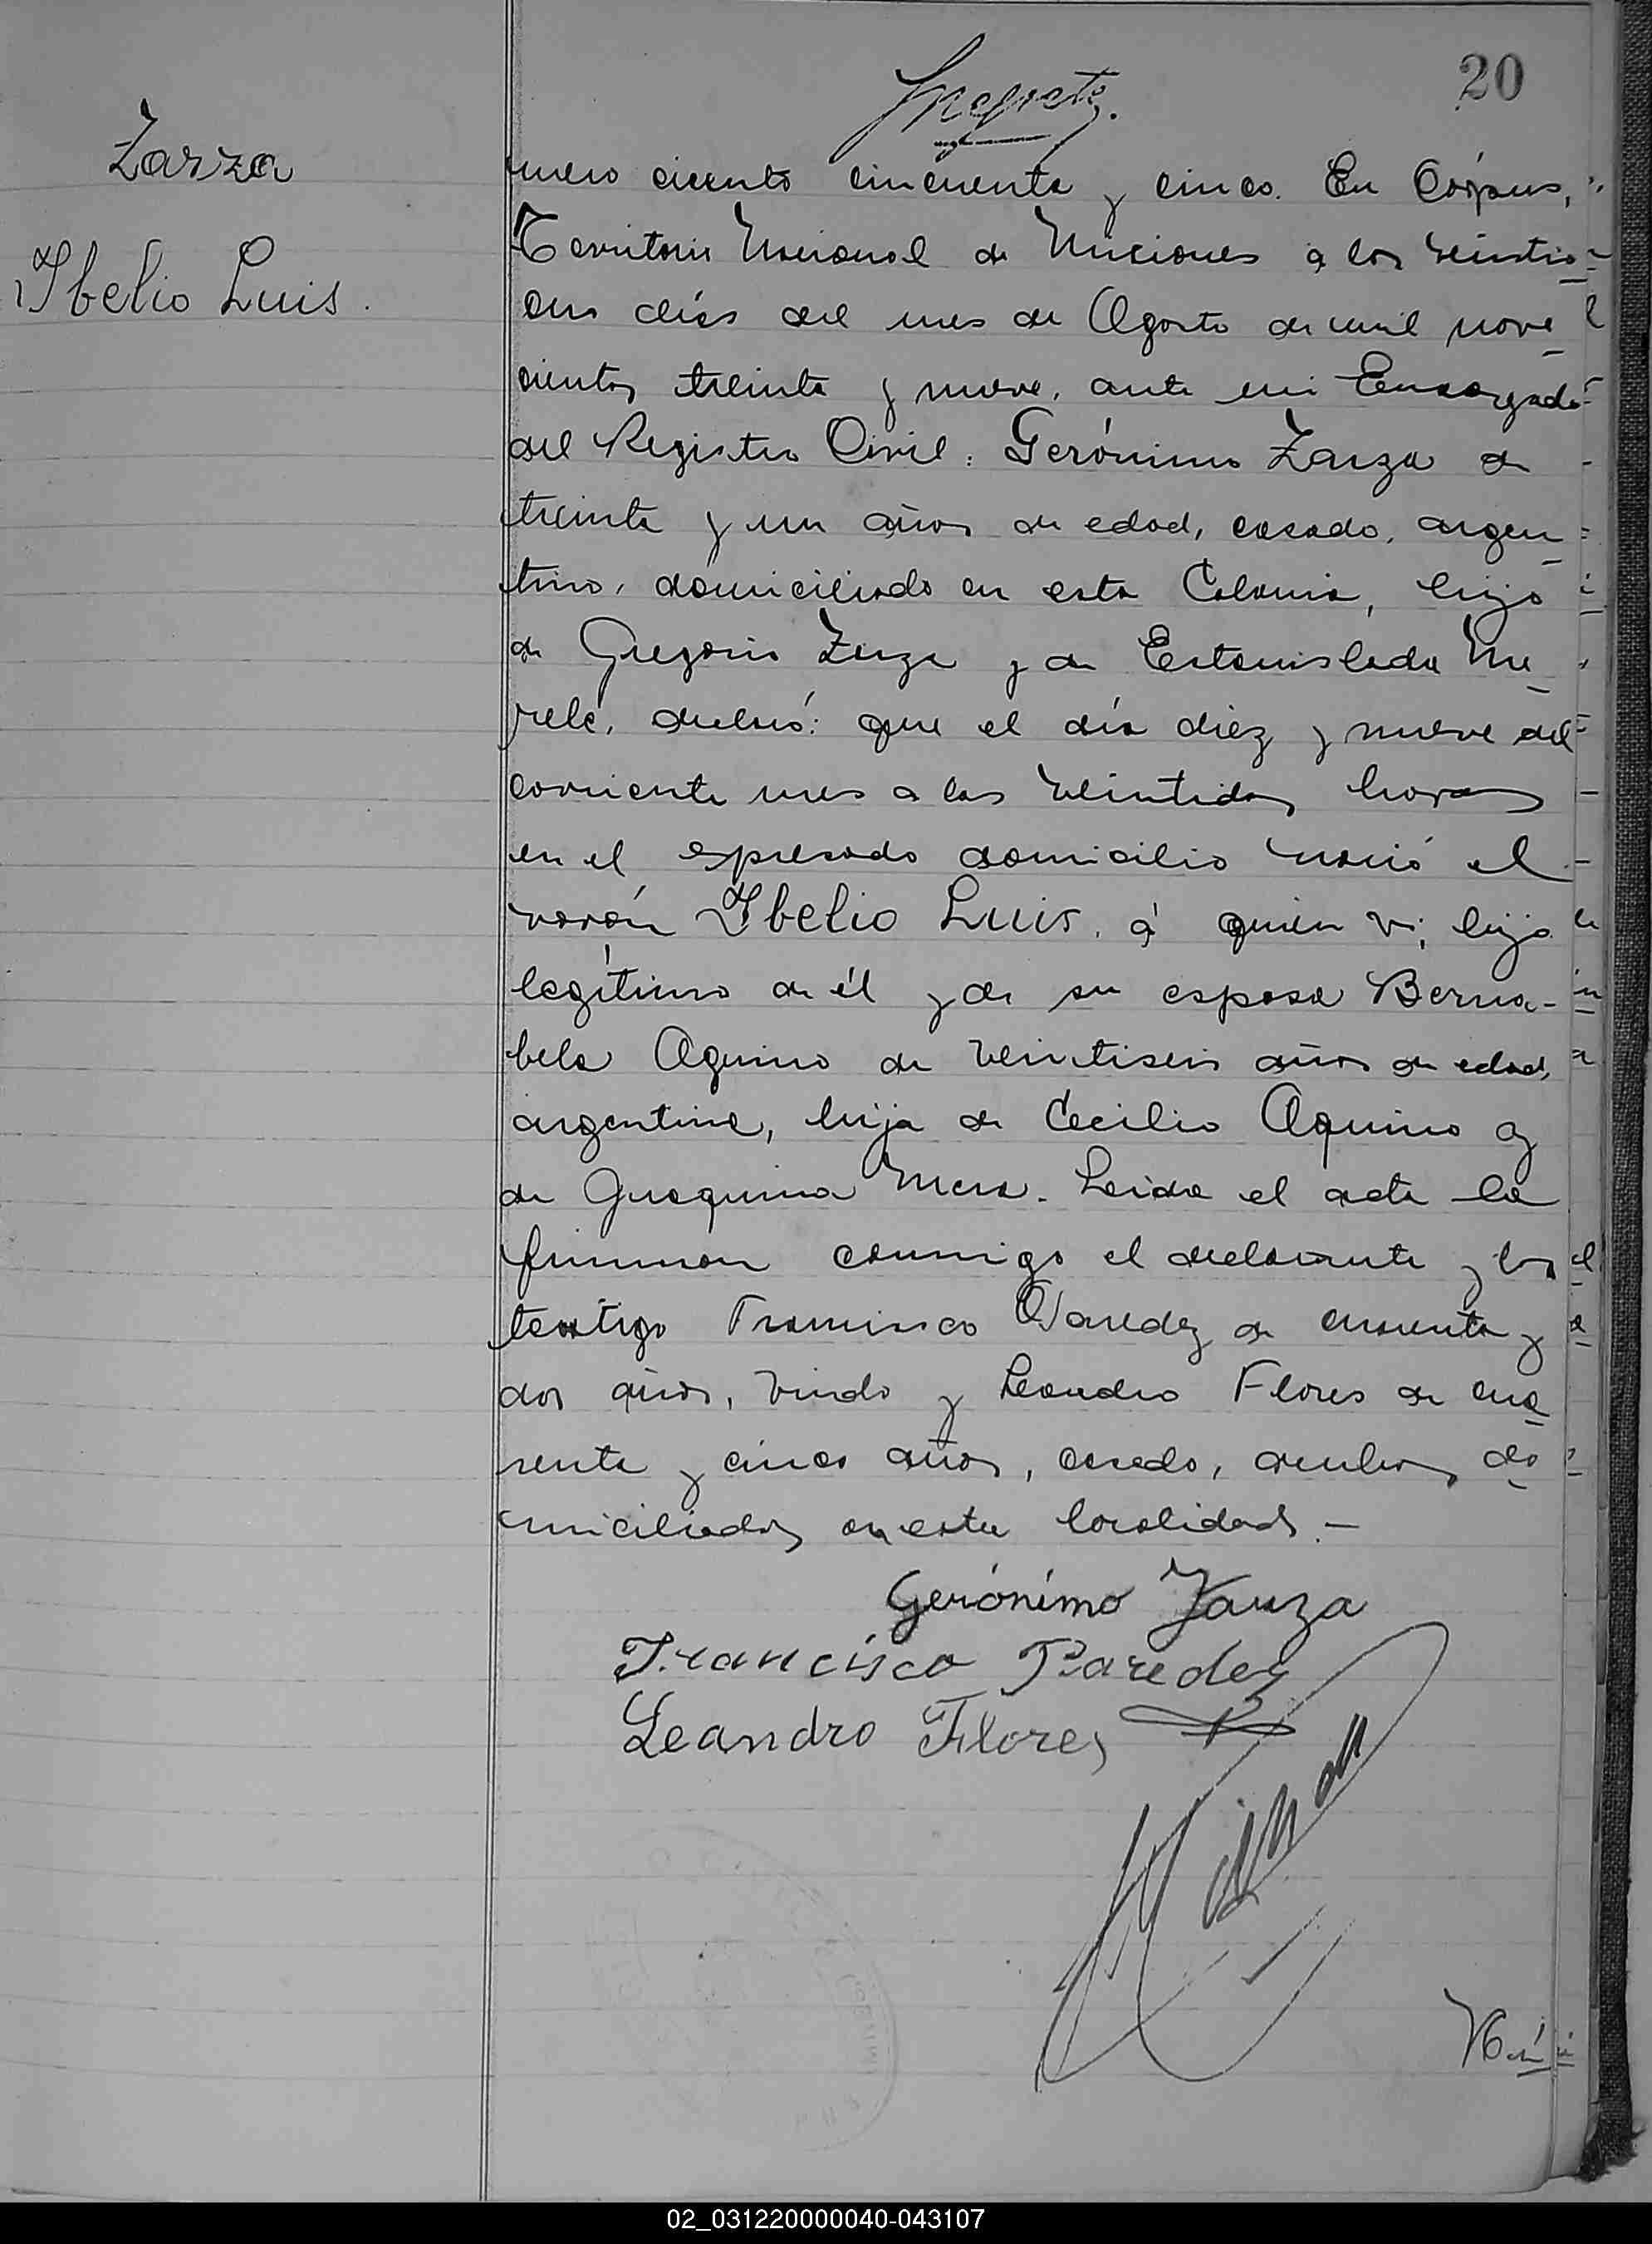 20
Zarza
Ibelio Luis.
mero ciento cincuenta y cinco. En Córpus,
Territorio Nacional de Misiones a los veintio
dias del mes de Agosto de mil nove
cientos treinta y nueve, ante mi Encargado
del Registro Civil: Gerónimo Zarza de
treinta y un años de edad, casado, argen
tino, domiciliado en esta Colonia, hijo
de Gregorio Zarza y de Estanislada Me
relé, declaró: que el día diez y nueve del
corriente mes a las veintidos horas
en el espresado domicilio nació el
varón Ibelio Luis, á quien vi, hijo
legítimo de él y de su esposa Berna-
bela Aquino de veintiseis años de edad,
argentina, hija de Cecilio Aquino y
de Juaquina Mera. Leida el acta la
firman conmigo el declarante y los
testigo Francisco Paredez de cuarenta y
dos años, viudo y Leandro Flores de cua
renta y cinco años, casado, ambos do
miciliados en esta localidad.-
Gerónimo Zarza
Francisco Paredez
Leandro Flores
02_031220000040-043107